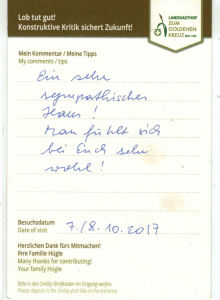 Lob tut gut!
Konstruktive Kritik sichert Zukunft!
LANDGASTHOF
ZUM
GOLDENEN
KREUZ
Mein Kommentar / Meine Tipps
My comments / tips
Ein sehr
sympathisches
Haus!
Man fühlt sich
bei Euch sehr
wohl!
Besuchsdatum
Date of visit
7./8.10.2017
Herzlichen Dank fürs Mitmachen!
Ihre Familie Hügle
Many thanks for contributing!
Your family Hügle
Bitte in den Smiley-Briefkasten im Eingang werfen.
Please deposit in the Smiley post box in the entrance.